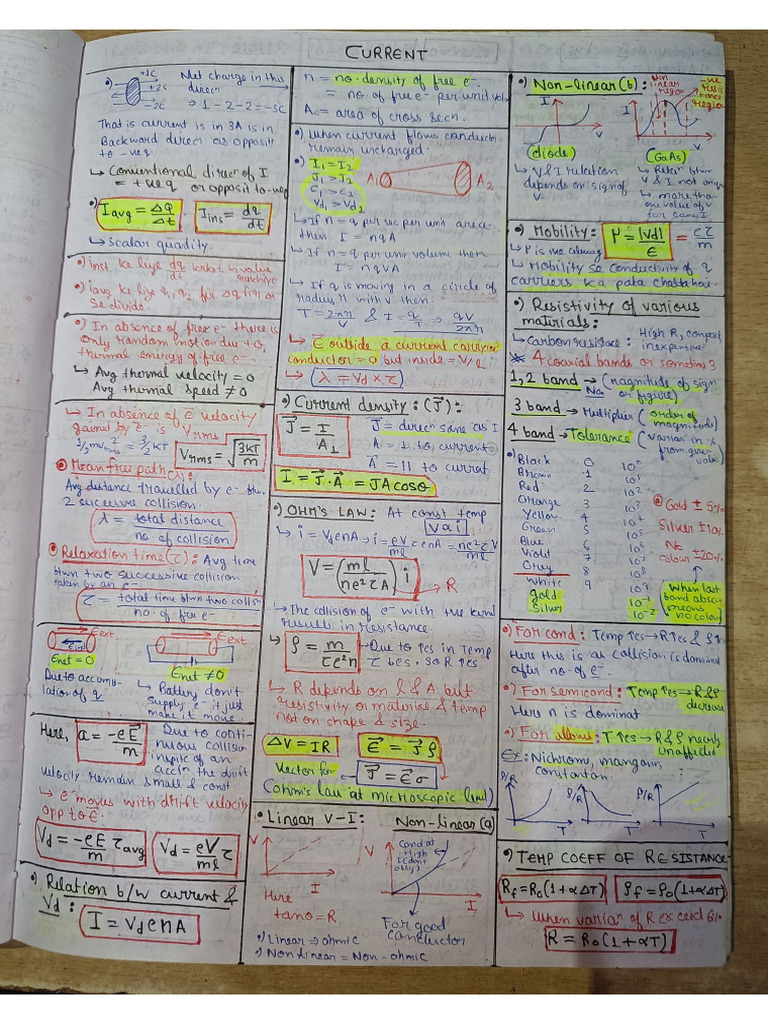 CURRENT
+1C
+2C
2C
Net charge in this
direcn
→ 1-2-2=-3C
That is current is in 3A is in
Backward direcn or opposit
to -veq
↳ Conventional direcn of I
= +ve q or opposit to -veq
•) Iavg = ΔQ/Δt , Iins = dq/dt
↳ scalar quantity.
•) inst ke liye dq/dt
•) iavg ke liye q1, q2 Δq
se divide.
•) In absence of free e⁻ there is
only random motion due to,
thermal energy of free e⁻
↳ Avg thermal velocity = 0
Avg thermal speed ≠ 0
↳ In absence of E velocity
gained by e⁻ is Vrms
1/2 mvrms² = 3/2 KT
Vrms = √3KT/m
Mean free path (λ):
Avg distance travelled by e⁻ btwn
2 successive collision.
λ = total distance / no of collision
Relaxation time (τ): Avg time
btwn two successive collision
taken by an e⁻
τ = total time btwn two collisn / no. of free e⁻
Eext
Eext
Enet = 0
Enet ≠ 0
Due to accumu-
lation of q
↳ Battery don't
supply e⁻ it just
make it move.
Here, a = -eE/m
Due to conti-
nuous collision
inspite of an
accn the drift
velocity remain small & const
↳ e⁻ moves with drift velocity
opp to E.
Vd = -eE/m τavg
Vd = eV/ml τ
•) Relation b/w current &
Vd : I = VdenA
n = no. density of free e⁻.
= no. of free e⁻ per unit volu
A = area of cross secn.
•) when current flows conductor
remain uncharged.
•) I1 = I2
J1 > J2
E1 > E2
Vd1 > Vd2
A1
A2
↳ If n = q per sec per unit area
then I = nqA
↳ If n = q per unit volume then
I = nqVA
↳ If q is moving in a circle of
radius r with v then:
T = 2πr/V & I = q/T → qV/2πr
↳ E outside a current carrying
conductor = 0 but inside = V/l
↳ λ = Vd x τ
•) Current density: (J):
J = I/A⊥
J = direcn same as I
A = ⊥ to current
A = || to currat
I = J.A = JAcosθ
•) OHM'S LAW: At const temp
V α i
↳ i = VdenA → i = eV/ml τenA = ne²τVA/ml
V = (ml/ne²τA) i
→ R
↳ The collision of e⁻ with the
results in resistance.
↳ ρ = m/τe²n
→ Due to ↑es in temp
τ ↓es. so R ↑es
↳ R depends on l & A but
resistivity or material & temp
not on shape & size.
ΔV = IR
E = Jρ
Vector for
J = Eσ
(ohm's law at microscopic level)
• Linear V-I:
V
I
Here
tanθ = R
Non-linear (a)
V
I
Cond at
High I
(don't
obey)
For good
conductor
•) Linear ⇒ ohmic
•) Non Linear = Non-ohmic
•) Non-linear (b):
I
V
(diode)
Non
linear
region
-ve
Resis
tance
Region
I
V
(GaAs)
↳ V & I relation
depends on sign of
V.
↳ Relacn btwn
V & I not uniq
↳ more than
one value of V
for same I
•) Mobility: μ = |Vd|/E = eτ/m
↳ μ is +ve always
↳ Mobility se conductivity of q
carriers ka pata chalta hai.
•) Resistivity of various
materials:
↳ Carbon resistace: High R, compact
inexpensive
* 4 coaxial bands or sometimes 3
1,2 band → (magnitude of sign
No or figure)
3 band → Multiplier (order of
magnitude)
4 band → Tolerance (varian in %
from given
value)
•) Black 0 10⁰
Brown 1 10¹
Red 2 10²
Orange 3 10³
Yellow 4 10⁴
Green 5 10⁵
Blue 6 10⁶
Violet 7 10⁷
Grey 8 10⁸
White 9 10⁹
gold 10⁻¹
Silver 10⁻²
Gold ± 5%
Silver ±10%
No
colour ±20%
When last
band absent
means
no colour
•) For cond: Temp ↑es → R ↑es & ρ ↑es
Here this is as collision is dominat
after no of e⁻.
•) For semicond: Temp ↑es → R & ρ
decrease
Here n is dominat
•) For alloys: T ↑es → R & ρ nearly
unaffected
Ex: Nichrome, manganin,
constantan.
ρ/R
T
ρ/R
T
ρ/R
T
•) TEMP COEFF OF RESISTANCE
Rf = R0(1+αΔT)
ρf = ρ0(1+αΔT)
↳ When varian of R exceed
R = R0(1+αT)